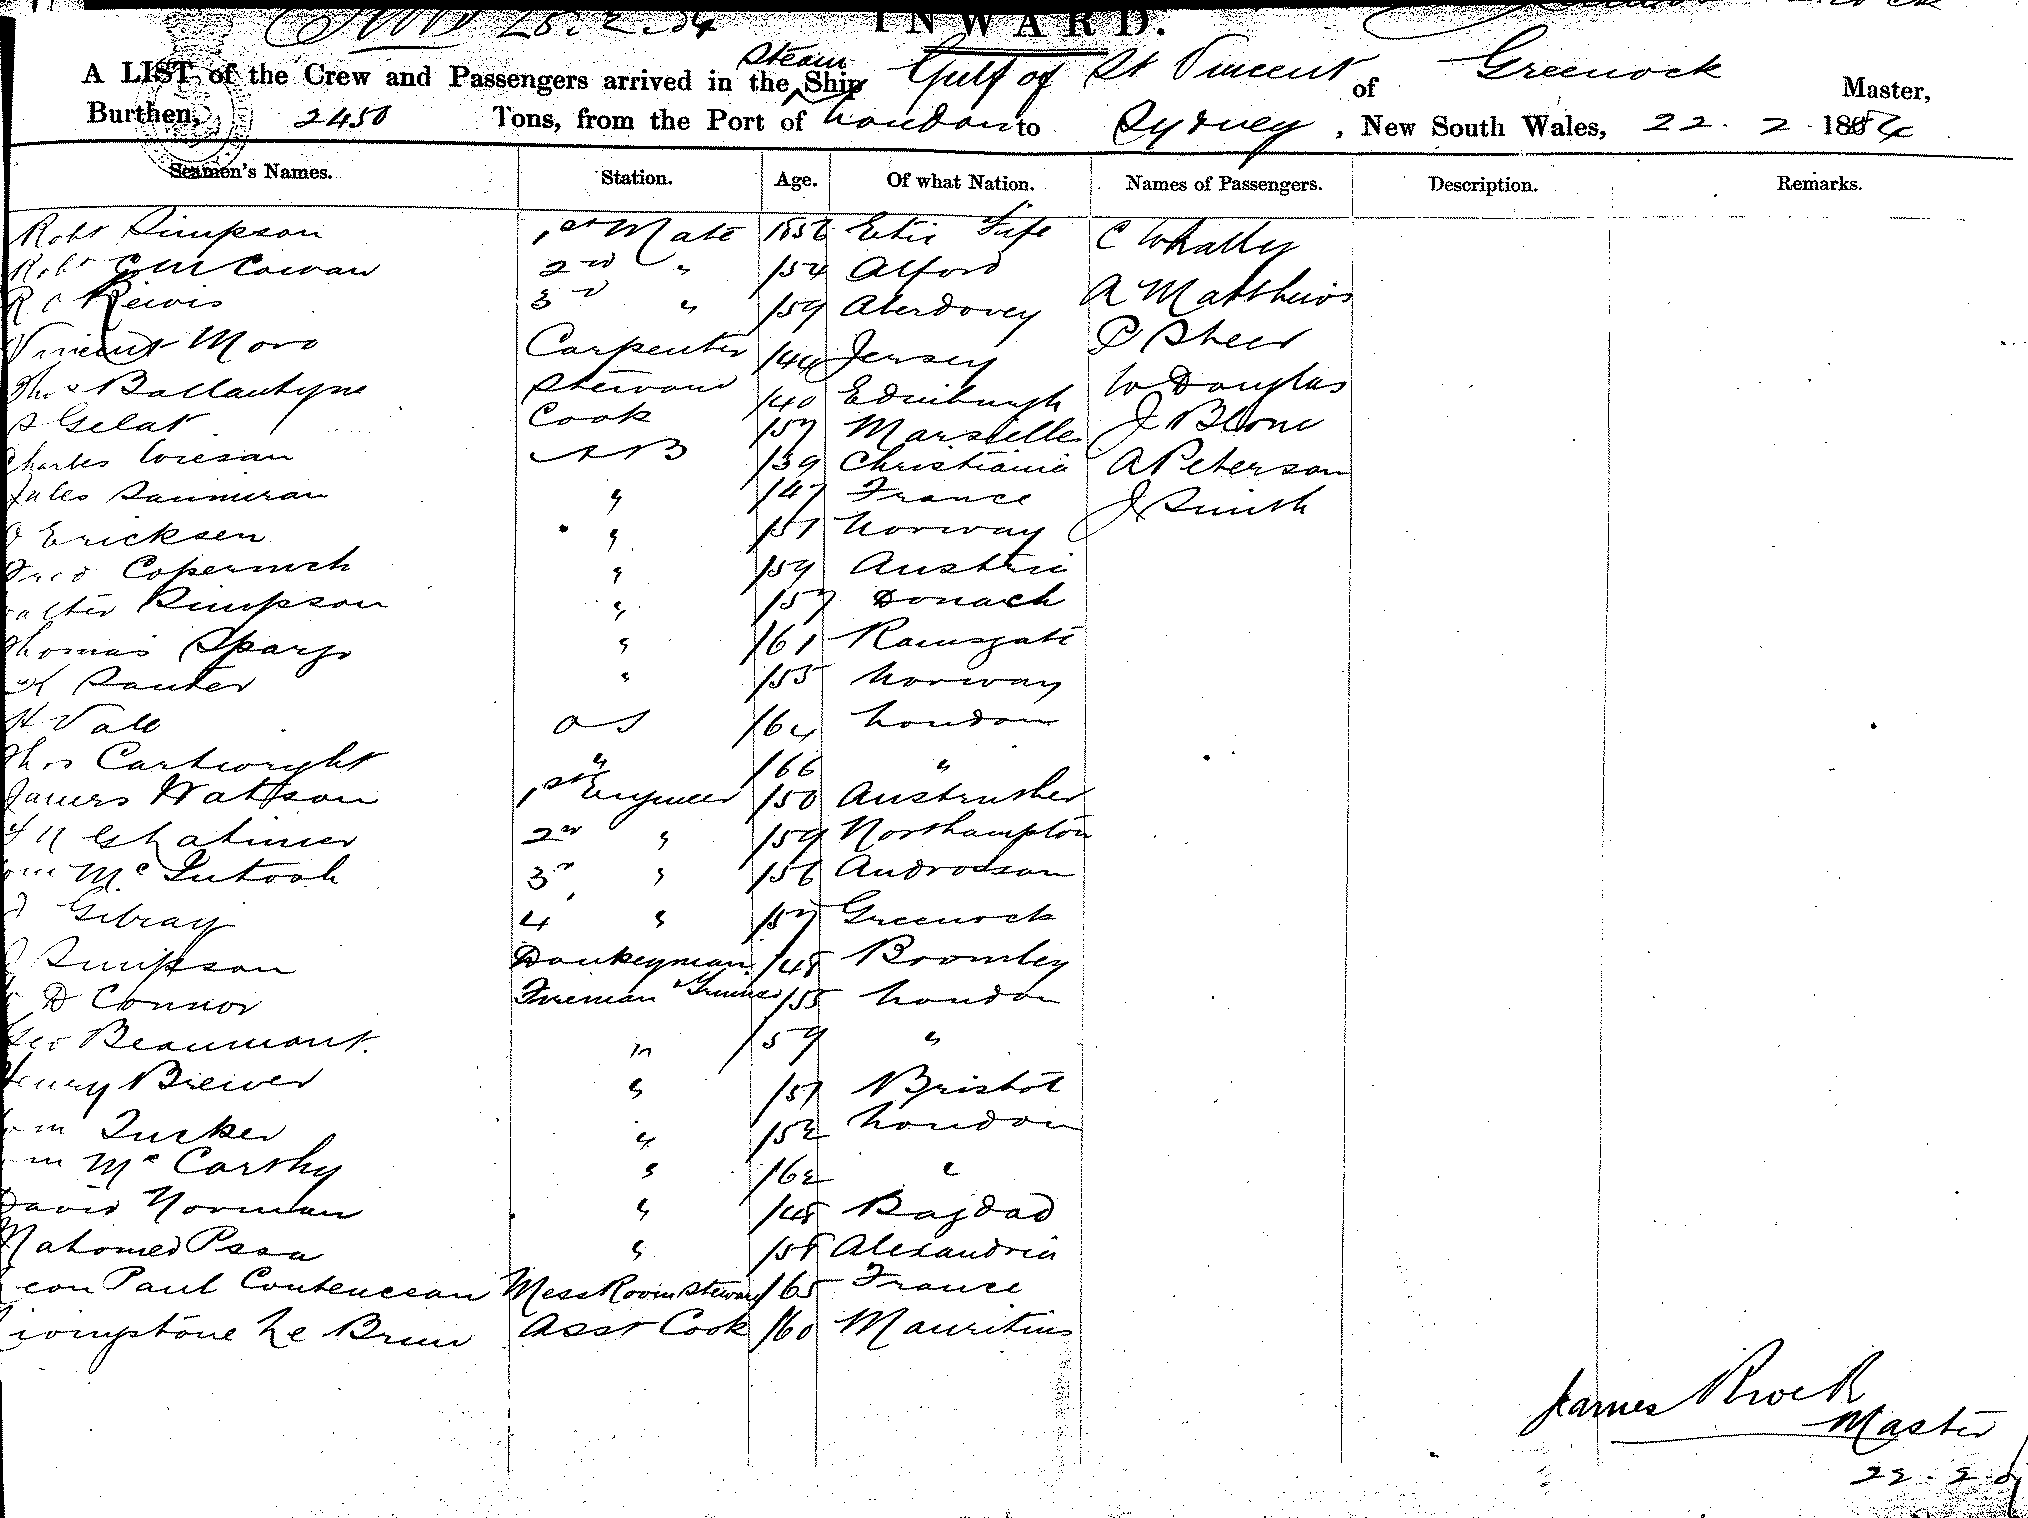 25.2.84 INWARD.
A LIST of the Crew and Passengers arrived in the Steam Ship Gulf of St Vincent of Greenock Master,
Burthen, 2450 Tons, from the Port of London to Sydney, New South Wales, 22. 2 1884
Seamen's Names. Station. Age. Of what Nation. Names of Passengers. Description. Remarks.
Robt Simpson 1st Mate 1856 Fife C Whatley
Robt Cowan 2nd " /54 Alford
R C 3rd " /59 Aberdovey A Matthews
Vincent Moro Carpenter /44 Jersey P Steer
Thos Ballantyne Steward /40 Edinburgh W Douglas
S Gelat Cook /57 Marseilles J
Charles AB /39 Christiania A Peterson
Jales " /47 France J Smith
Ericksen " /51 Norway
Fred " /59 Austria
alter Simpson " /57
Thomas Spargo " /61 Ramsgate
" /55 Norway
H Vall OS /64 London
Thos Cartwright " /66 "
James Watson 1st Engineer /50 Anstruther
Latimer 2nd " /59 Northampton
Mc Intosh 3rd " /56 Androssan
Gilray 4 " /57 Greenock
Simpson Donkeyman /48 Bromley
D Connor Fireman & Trimmer /55 London
Geo Beaumont. " /59 "
Henry Brewer " /57 Bristol
m Tucker " /52 London
m Mc Carthy " /62 "
David Norman " /48 Bagdad
Mahomed " /58 Alexandria
eon Paul Mess Room Steward /65 France
ivingstone Le Brun Asst Cook /60 Mauritius
James Brock
Master
22-2-